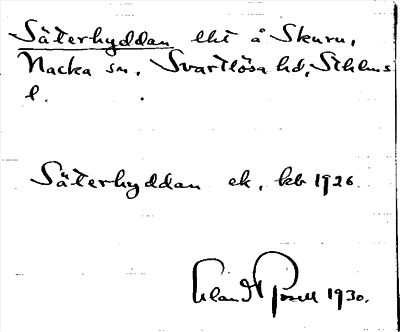 Säterhyddan lht å Skuru,
Nacka sn, Svartlösa hd, Sthlms
l.
Säterhyddan ek, kb 1926
Erland Rosell 1930.